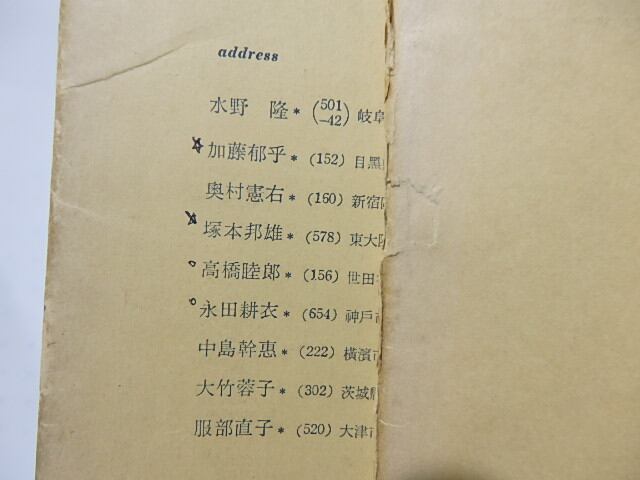 address
水野 隆*(501-42)岐阜
☆加藤郁乎*(152)目黒
奥村憲右*(160)新宿
☆塚本邦雄*(578)東大阪
。高橋睦郎*(156)世田
。永田耕衣*(654)神戸市
中島幹惠*(222)横濱市
大竹蓉子*(302)茨城県
服部直子*(520)大津市